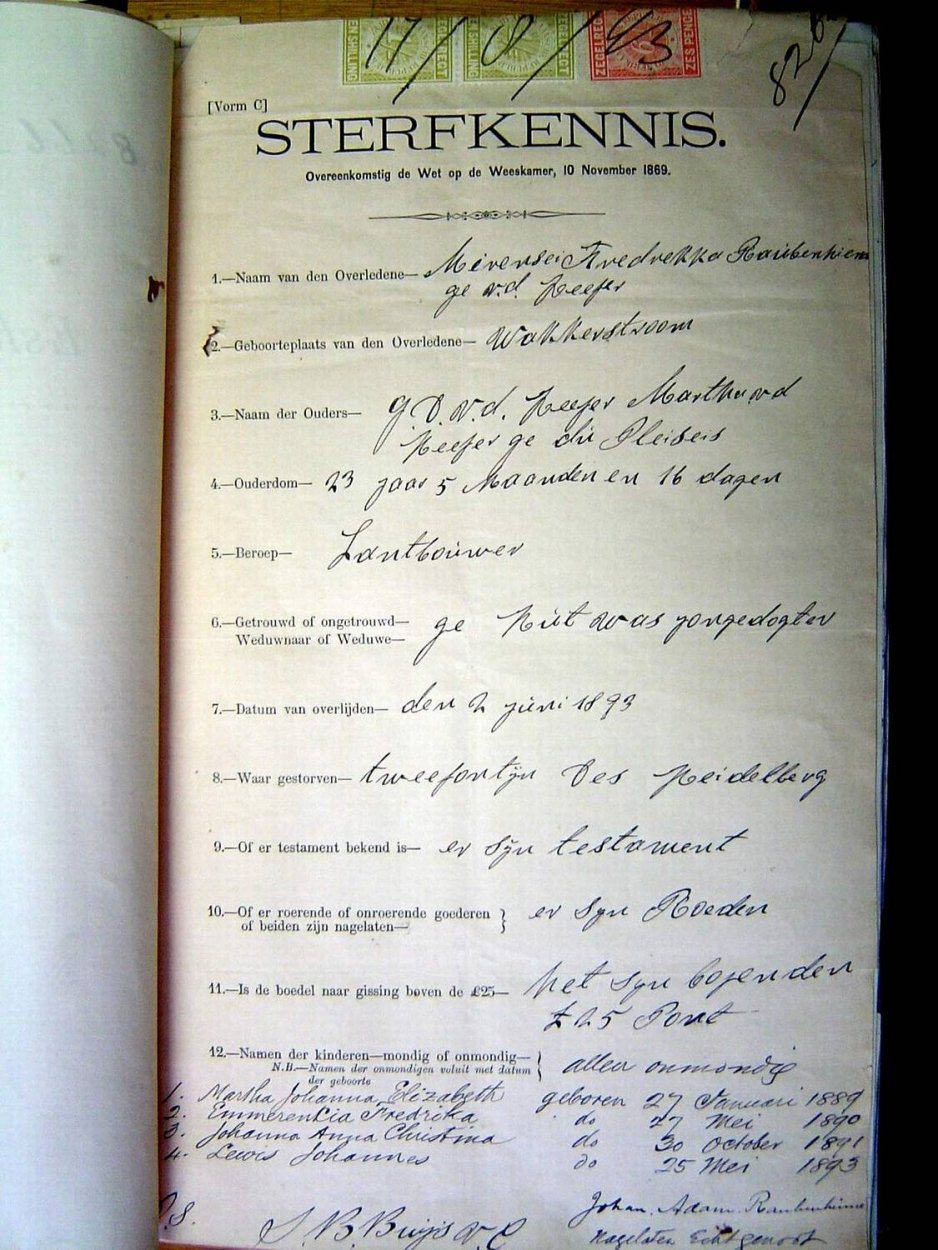 17/8/93
826
[Vorm C]
STERFKENNIS.
Overeenkomstig de Wet op de Weeskamer, 10 November 1869.
1.—Naam van den Overledene— Fredrekka Raubenhiem
ge v.d. Heefer
2.—Geboorteplaats van den Overledene— Wakkerstroom
3.—Naam der Ouders— v.d. Heefer Martha v d
Heefer ge du Pleiseis
4.—Ouderdom— 23 jaar 5 Maanden en 16 dagen
5.—Beroep— Lantbouwer
6.—Getrouwd of ongetrouwd— ge Hut was jongedogter
Weduwnaar of Weduwe—
7.—Datum van overlijden— den 2 juni 1893
8.—Waar gestorven— tweefontyn Des Heidelberg
9.—Of er testament bekend is— er syn testament
10.—Of er roerende of onroerende goederen } er syn Roeden
of beiden zijn nagelaten—
11.—Is de boedel naar gissing boven de £25— Het syn bojenden
£25 Pont
12.—Namen der kinderen—mondig of onmondig— } allen onmondig
N.B.—Namen der onmondigen voluit met datum
der geboorte
1. Martha Johanna Elizabeth geboren 27 Januari 1889
2. Emmerentia Fredrika do 27 Mei 1890
3. Johanna Anna Christina do 30 October 1891
4. Lewis Johannes do 25 Mei 1893
Johan. Adam. Raubenheimer
S. B. Buijs v.C Nagelaten Echtgenoot